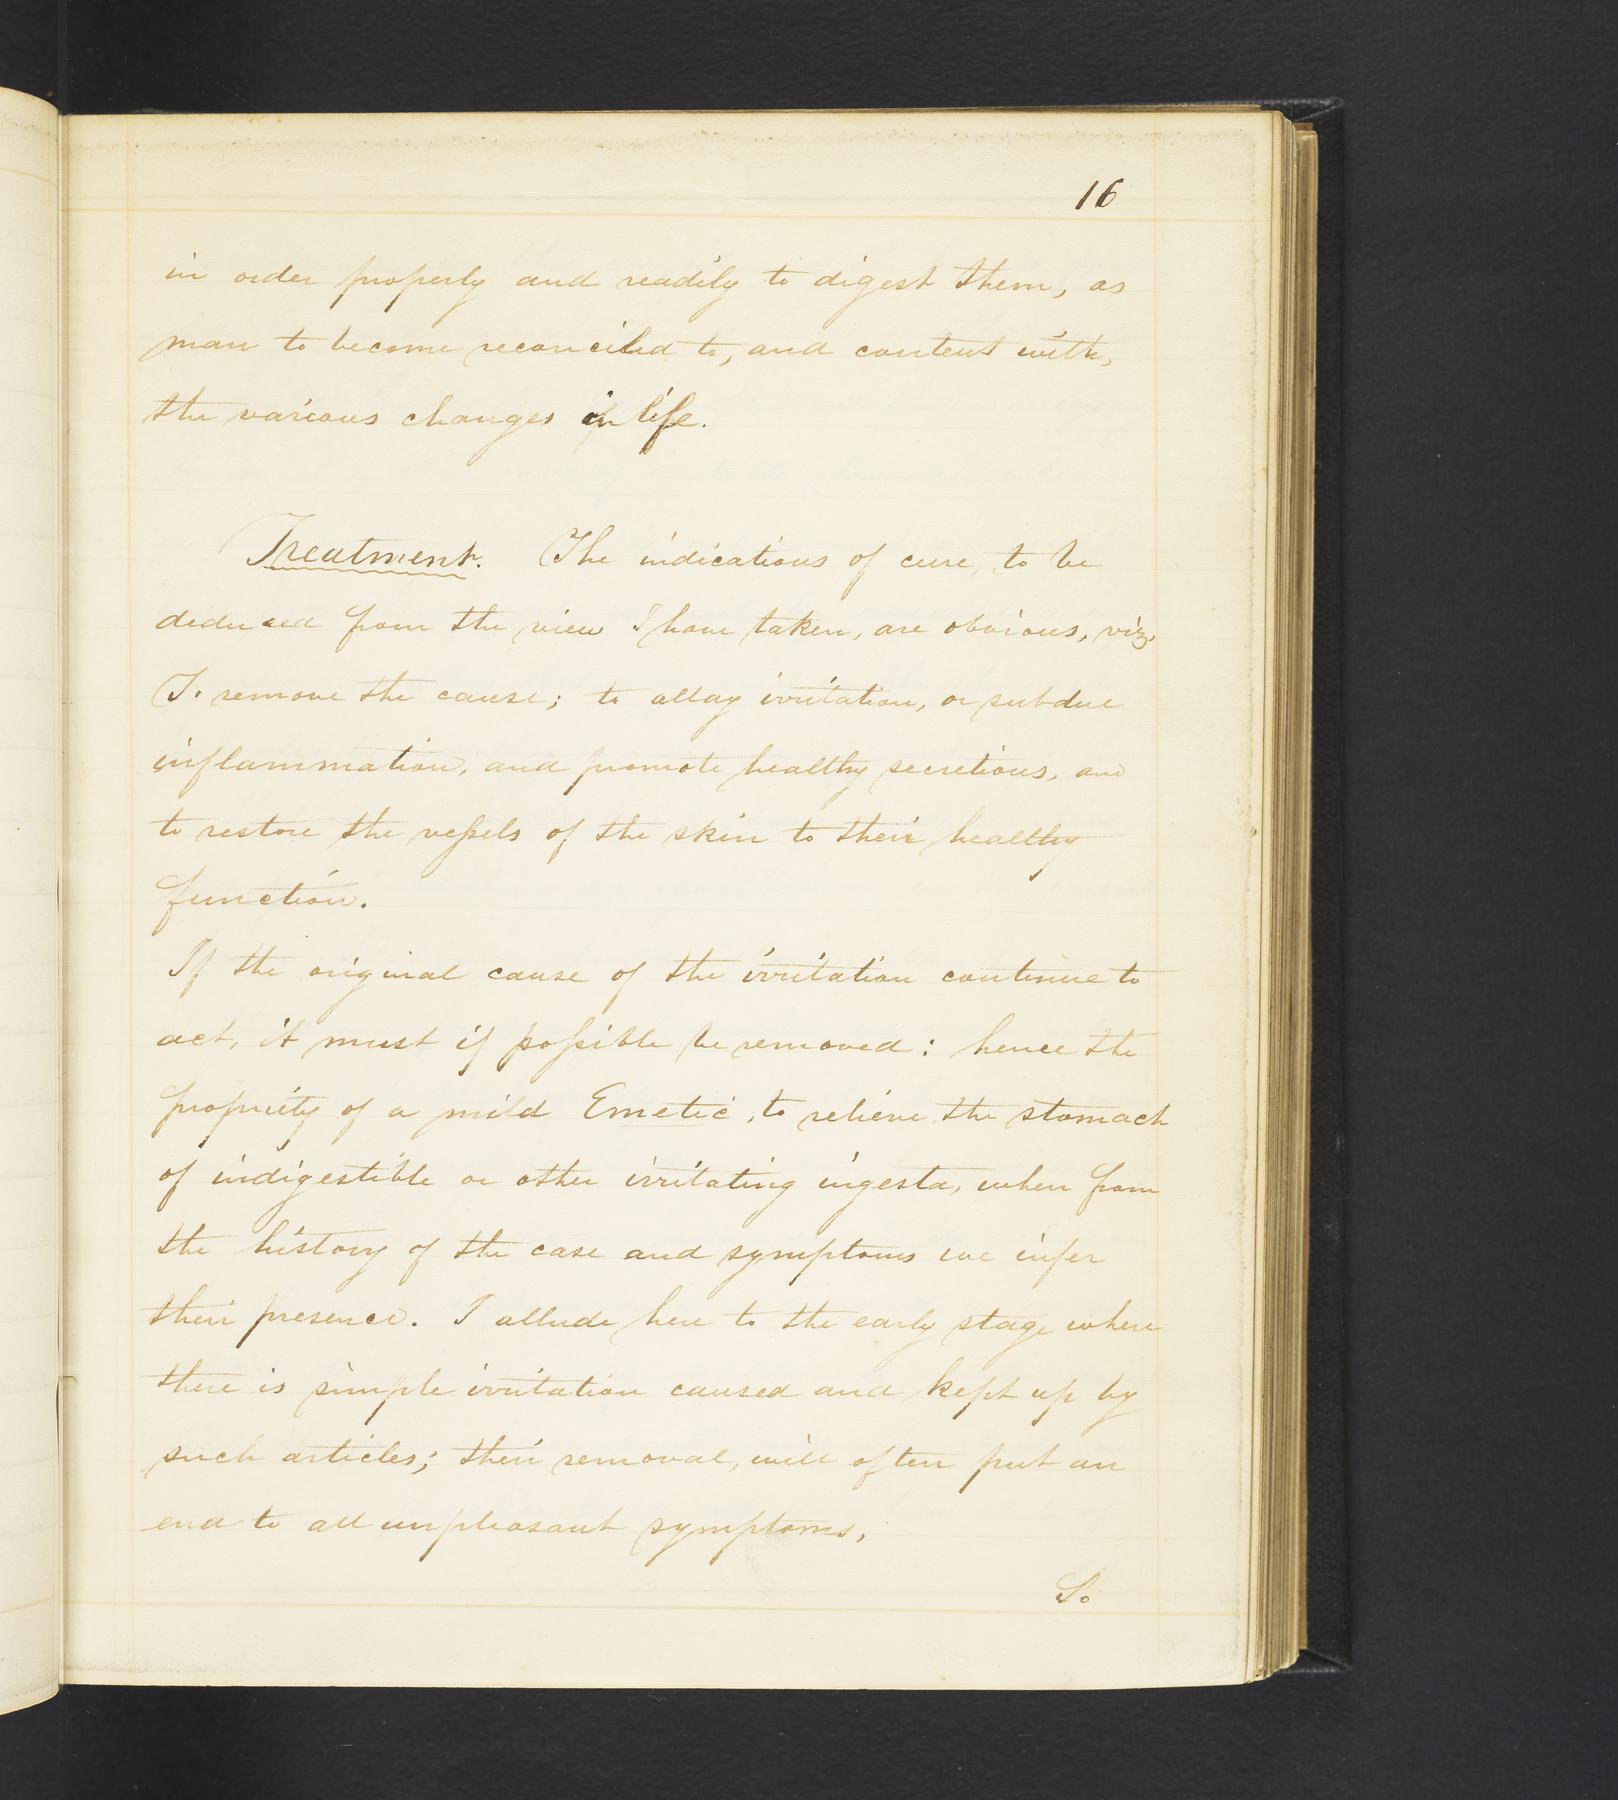 16
in order properly and readily to digest them, as
man to become reconciled to, and content with,
the various changes in life.
Treatment. The indications of cure, to be
deduced from the view I have taken, are obvious, viz.
To remove the cause; to allay irritation, or subdue
inflammation, and promote healthy secretions, and
to restore the veſsels of the skin to their healthy
function.
If the original cause of the irritation continue to
act, it must if poſsible be removed: hence the
propriety of a mild Emetic, to relieve the stomach
of indigestible or other irritating ingesta, when from
the history of the case and symptoms we infer
their presence. I allude here to the early stage where
there is simple irritation caused and kept up by
such articles; their removal, will often put an
end to all unpleasant symptoms,
So